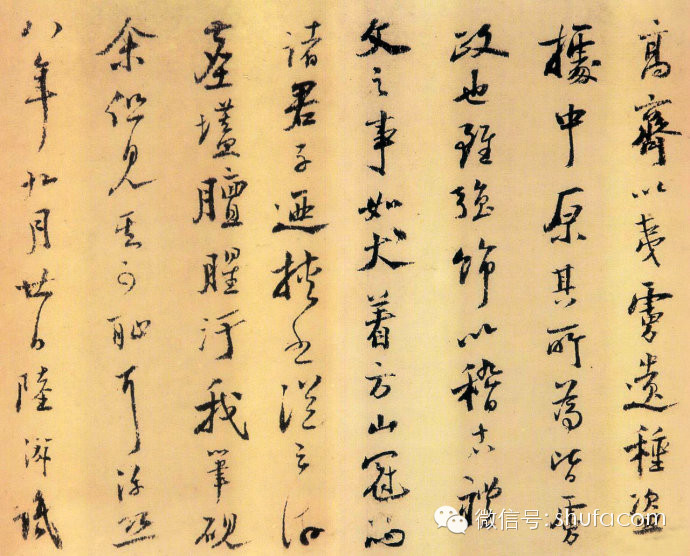 高齊以夷虜遺種盜
據中原其所為皆虜
政也雖強飾以稽古禮
文之事如犬着方山冠而
諸君子迺挾書從之游
塵壒膻腥汙我筆硯
余但見其可恥耳淳熙
八年九月廿日陸游識
微信号: shufacom